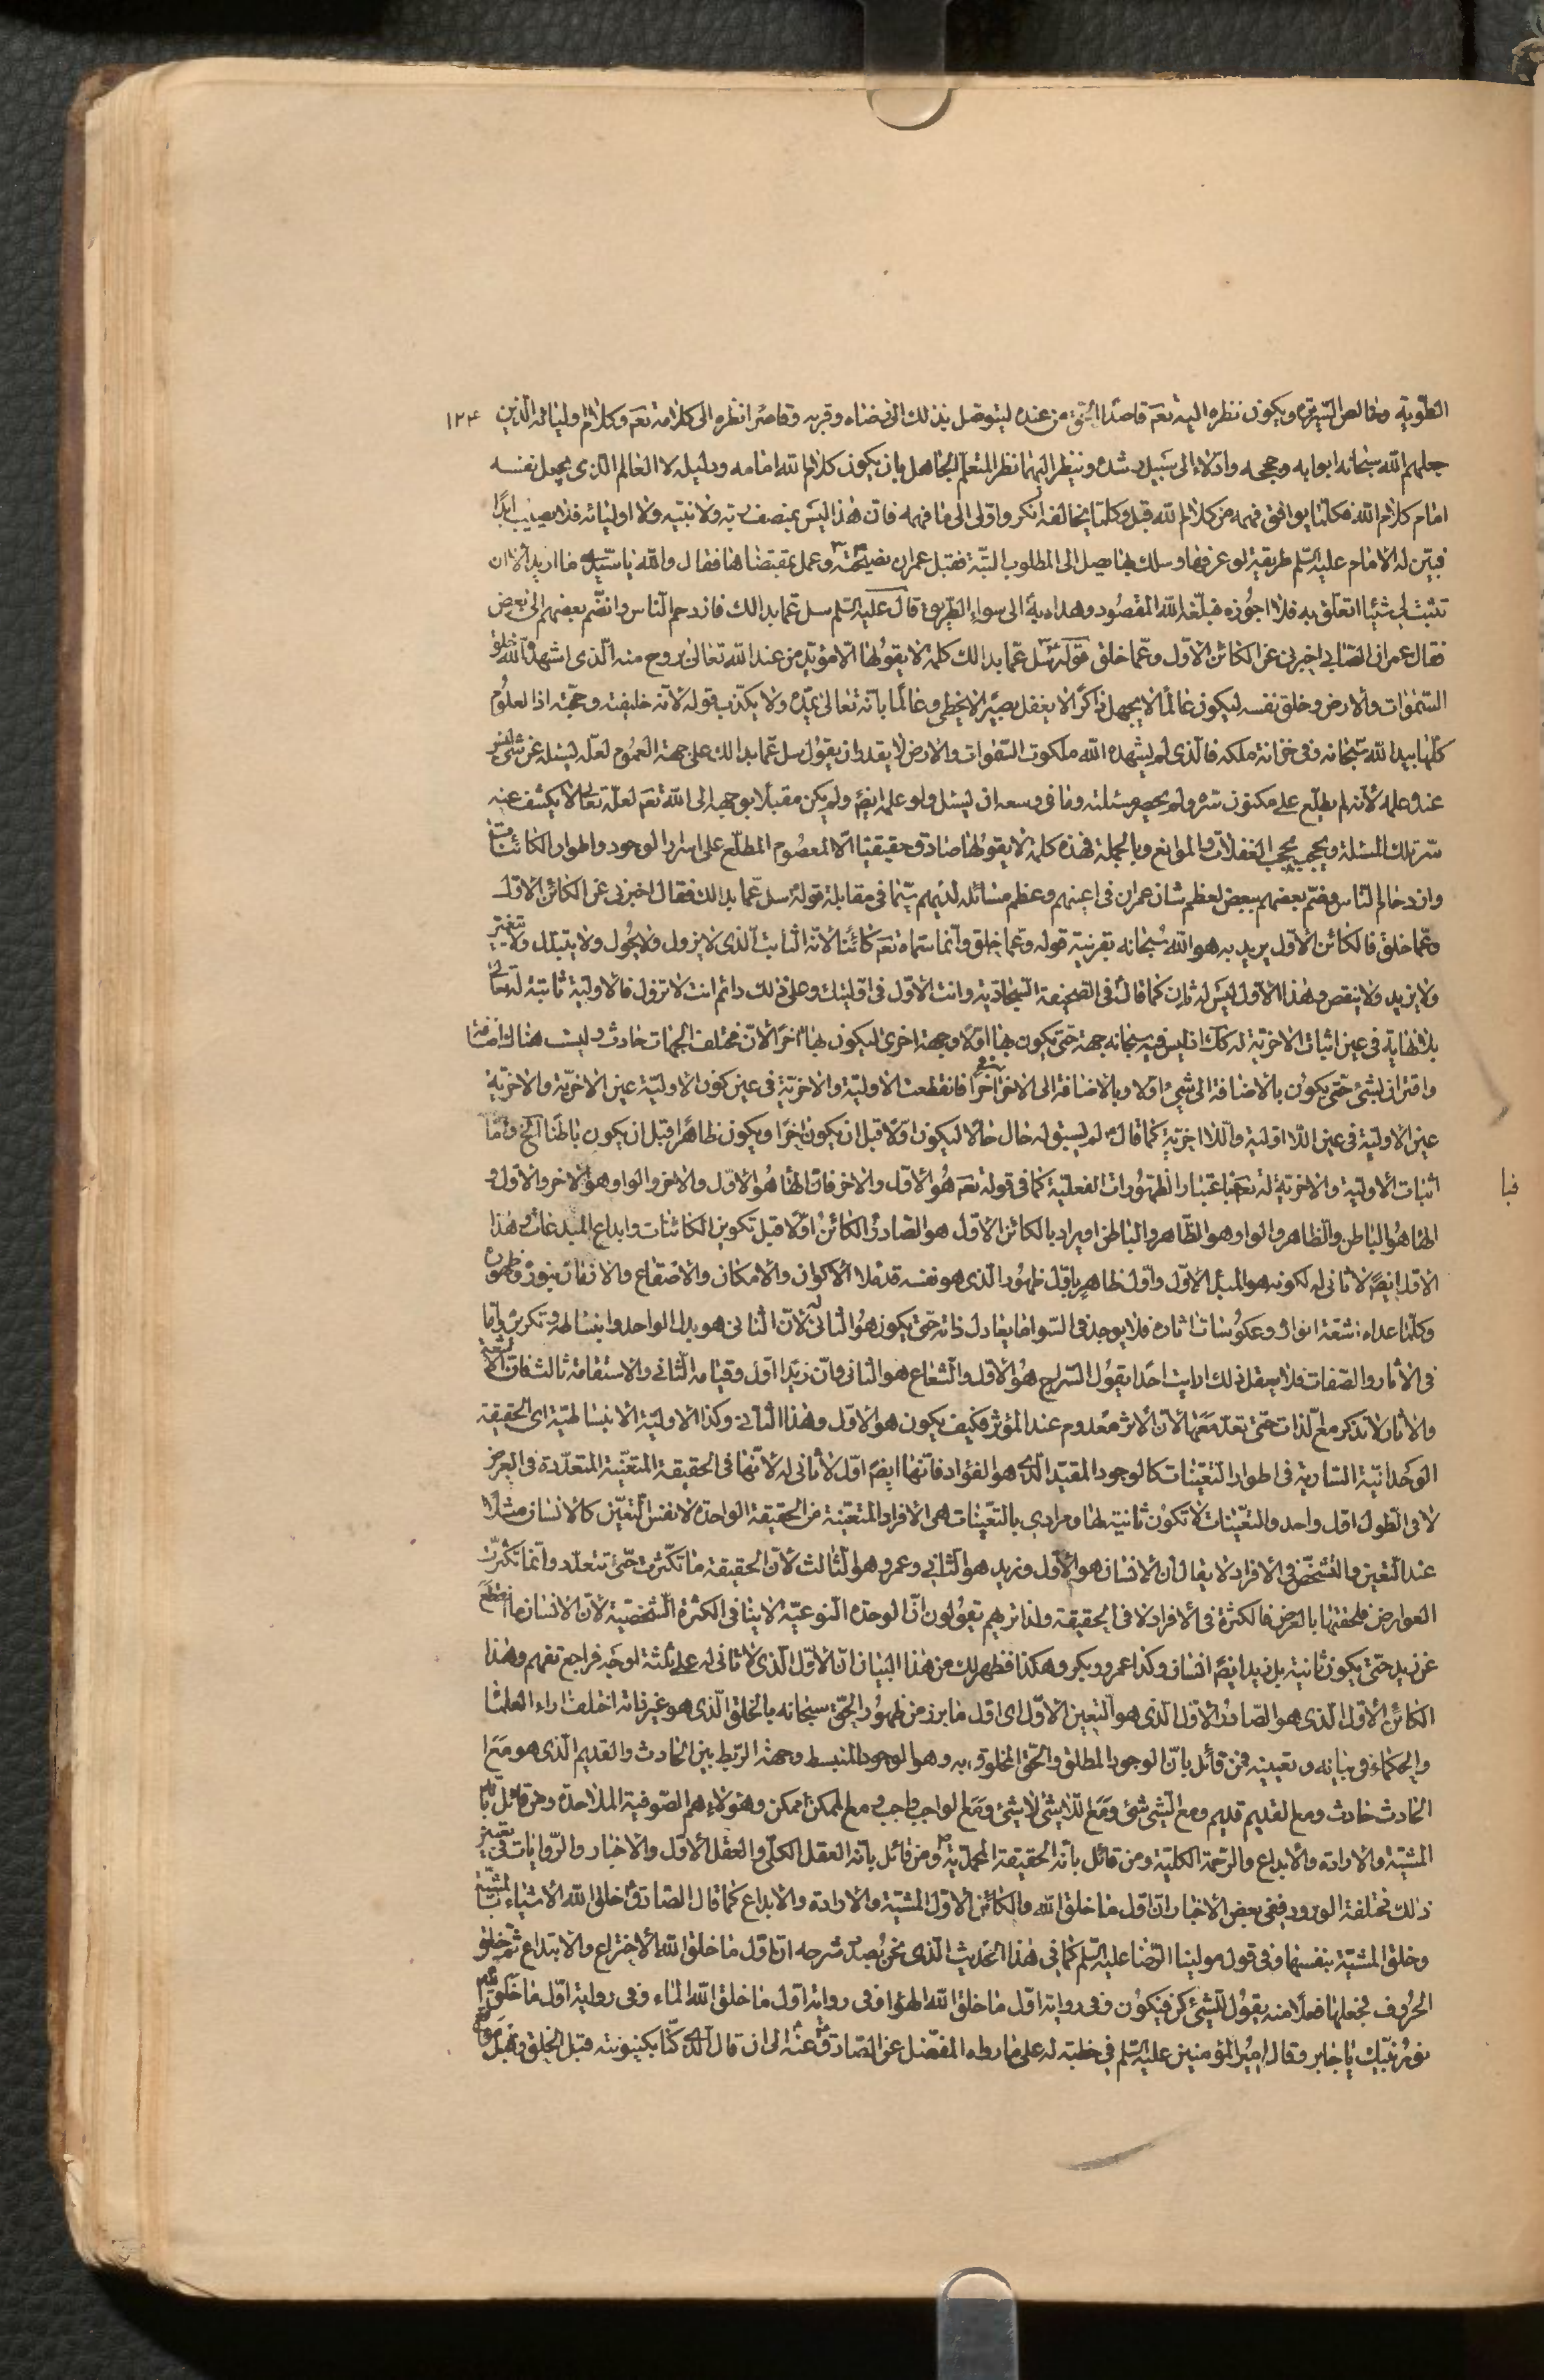 الطّويّه وخالص السّريرة ويكون نظره اليه تعَم قاصدًا الحق من عنده ليتوصّل بذلك الى رضاه وقربه وقاصرًا نظره الى كلامه تعَم وكلام اوليائه الّذين ١٢٤
جعلهم الله سبحانه ابوابه وحججه وادلّاء الى سبيل رشده وينظر اليهما نظر المتعلّم الجاهل بان يكون كلام الله امامه ودليله لا العالم الّذى يجعل نفسه
امام كلام الله فكلّما يوافق فهمه من كلام الله قبل وكلّما يخالفه انكر واوّل الى ما فهمه فانّ هذا ليس بمنصف ربّه ولا نبيّه ولا اوليائه فلا يصيب ابدًا
فبيّن له الامام عليه السّلم طريقه لو عرفها وسلك بها يصل الى المطلوب البتّة فقبل عمران نصيحته وعمل بمقتضاها فقال والله يا سيّدى ما اريد الّا ان
تثبت لى شيئا اتعلّق به فلا اجوزه فبلّغه الله المقصود وهداه به الى سواء الطّريق قال عليه السّلم سل عمّا بدا لك فازدحم النّاس وانضّم بعضهم الى بعض
فقال عمران الصّابى اخبرنى عن الكائن الاوّل وعمّا خلق قوله سل عمّا بدا لك كلمة لا يقولها الّا مؤيّد من عند الله تعالى بروح منه الّذى اشهده الله خلق
السّموات والارض وخلق نفسه ليكون عالمًا لا يجهل ذاكرًا لا يغفل بصيرًا لا يخطى وعالمًا بانّه تعالى يمدّه ولا يكذّب قوله لانّه خليفته وحجّته اذا لعلوم
كلّها بيد الله سبحانه وفى خزانة ملكه فالّذى لم يشهده الله ملكوت السّموات والارض لا يقدر ان يقول سل عمّا بدا لك على جهة العموم لعلّه ليسئله عن شئ ليس
عنده علمه لانّه لم يطّلع على مكنون سرّه ولم يحصر مسئلته وما فى وسعه ان ليسئل ولو علم ايضًا ولم يكن مقبلًا بوجهه الى الله تعَم لعلّه تعالى لا يكشف عنه
سرّ تلك المسئلة ويحجبه بحجب الغفلات والموانع وبالجملة فهذه كلمة لا يقولها صادق حقيقيّا الّا المعصوم المطّلع على اسرار الوجود واطوار الكائنات
وازدحام النّاس وضمّ بعضهم ببعض لعظم شان عمران فى اعينهم وعظم مسائله لديهم سيّما فى مقابلة قوله سل عمّا بدا لك فقال اخبرنى عن الكائن الاوّل
وعمّا خلق فالكائن الاوّل يريد به هو الله سبحانه بقرينة قوله وعمّا خلق وانّما سمّاه تعَم كائنًا لانّه الثابت الّذى لا يزول ولا يحول ولا يتبدّل ولا يتغيّر
ولا يزيد ولا ينقص وهذا الاوّل ليس له ثان كما قال فى الصّحيفة السّجاديّة وانت الاوّل فى اوّليتك وعلى ذلك دائم انت لا تزول فالاوليّة ثابتة له تعالى
بلا نهاية فى عين اثبات الاخريّة له كك اذ ليس فيه سبحانه جهة حتى يكون بها اوّلًا وجهة اخرى ليكون بها اخرًا لانّ مختلف الجهات حادث وليست هناك اضافة
واقتران بشئ حتّى يكون بالاضافة الى شئ اوّلا وبالاضافة الى الاخر اخرًا فانقطعت الاوليّة والاخريّة فى عين كون الاوليّة عين الاخريّة والاخريّة
عين الاوليّة فى عين اللّا اوليّة واللّا اخريّة كما قال لم يسبق له حال حالًا ليكون اوّلا قبل ان يكون اخرًا ويكون ظاهرًا قبل ان يكون باطنًا الخ وامّا
اثبات الاوليّة والاخريّة له تعَم فباعتبار الظّهورات الفعليّة كما فى قوله تعَم هو الاوّل والاخر فانّ الهاء هو الاوّل والاخر والواو هو الاخر والاوّل و
الهاء هو الباطن والظّاهر والواو هو الظّاهر والباطن او يراد بالكائن الاوّل هو الصّادر الكائن اوّلًا قبل تكوين الكائنات وابداع المبدعات وهذا
الاوّل ايضًا لا ثانى له لكونه هو المبدء الاوّل واوّل ظاهر باوّل ظهور الّذى هو نفسه قد ملا الاكوان والامكان والاصقاع والافاق بنوره وظهوره
وكلّما عداه اشعّة انواره وعكوسات اثاره فلا يوجد فى السّوا ما يعادل ذاته حتّى يكون هو الثّانى له لانّ الثّانى هو بدل الواحد وانبساطه وتكريره وامّا
فى الاثار والصّفات فلا يعقل ذلك ارايت احدًا يقول السّراج هو الاوّل والشّعاع هو الثّانى وانّ زيدًا اوّل وقيامه الثّانى والاستقامة ثالث فانّ الاشعّة
والاثار لا تذكر مع الذّات حتّى تعدّ معها لانّ الاثر معدوم عند المؤثر فكيف يكون هو الاوّل وهذا الثّانى وكذا الاوليّة الانبساطيّة اى الحقيقة
الوحدانيّة السّارية فى اطوار التّعيّنات كالوجود المقيّد الّذى هو الفؤاد فانّها ايضًا اوّل لا ثانى له لانّها فى الحقيقة المتعيّنة المتعدّدة فى العرض
لا فى الطّول اوّل واحد والتعيّنات لا تكون ثانية لها ومرادى بالتعيّنات هى الافراد المتعيّنة من الحقيقة الواحدة لا نفس التّعيّن كالانسان مثلًا
عند التعيّن والتشخّص فى الافراد لا يقال انّ الانسان هو الاوّل وزيد هو الثّانى وعمرو هو الثّالث لانّ الحقيقة ما تكثّرت حتّى تتعدّد وانّما تكثّرت
العوارض فلحقتها بالعرض فالكثرة فى الافراد لا فى الحقيقة ولذا تريهم يقولون انّ الوحدة النّوعيّة لا ينافى الكثرة الشّخصيّة لانّ الانسان ما انقطع
عن زيد حتّى يكون ثانية بل زيد ايضًا انسان وكذا عمرو وبكر وهكذا فظهر لك من هذا البيان انّ الاوّل الّذى لا ثانى له على ثلثة اوجه فراجع تفهم وهذا
الكائن الاوّل الّذى هو الصّادر الاوّل الّذى هو التّعيّن الاوّل اى اوّل ما برز من ظهور الحقّ سبحانه بالخلق الّذى هو غير ذاته اختلف اراء العلماء
والحكماء فى بيانه وتعيينه فمن قائل بانّ الوجود المطلق والحقّ المخلوق به وهو الوجود المنبسط وجهة الرّبط بين الحادث والقديم الّذى هو مع
الحادث حادث ومع القديم قديم ومع الشّئ شئ ومع اللّا شئ لا شئ ومع الواجب واجب ومع الممكن ممكن وهؤلاء هم الصّوفية الملاحدة ومن قائل بانّه
المشيّة والارادة والابداع والرّحمة الكليّة ومن قائل بانّه الحقيقة المحمديّة ص ومن قائل بانّه العقل الكلّى والعقل الاوّل والاخبار والرّوايات فى تعيين
ذلك مختلفة الورود ففى بعض الاخبار انّ اوّل ما خلق الله والكائن الاوّل المشيّة والارادة والابداع كما قال الصّادق خلق الله الاشياء بالمشيّة
وخلق المشيّة بنفسها وفى قول مولينا الرّضا عليه السّلم كما فى هذا الحديث الّذى نحن بصدد شرحه انّ اوّل ما خلق الله الاختراع والابتداع ثمّ خلق
الحروف فجعلها فعلًا منه يقول للشّئ كن فيكون وفى رواية اوّل ما خلق الله الهواء وفى رواية اوّل ما خلق الله الماء وفى رواية اوّل ما خلق الله
نور نبيّك يا جابر وقال امير المؤمنين عليه السّلم فى خطبة له على ما رواه المفضّل عن الصّادق عنه الى ان قال الّذى كنّا بكينونته قبل الخلق وقبل
فبا